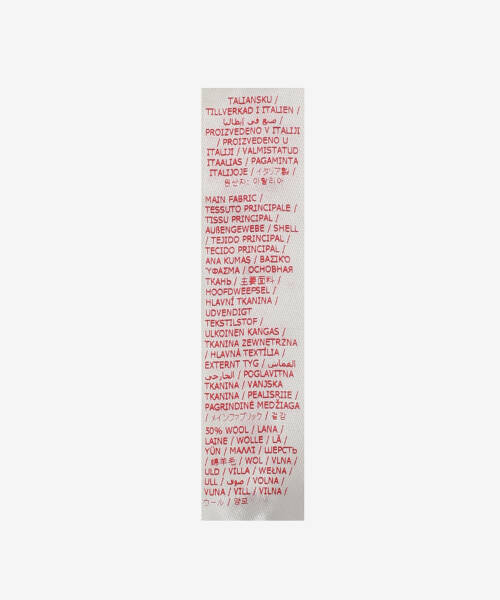 TALIANSKU /
TILLVERKAD I ITALIEN /
صنع في إيطاليا /
PROIZVEDENO V ITALIJI
/ PROIZVEDENO U
ITALIJI / VALMISTATUD
ITAALIAS / PAGAMINTA
ITALIJOJE / イタリア製 /
원산지: 이탈리아
MAIN FABRIC /
TESSUTO PRINCIPALE /
TISSU PRINCIPAL /
AUßENGEWEBE / SHELL
/ TEJIDO PRINCIPAL /
TECIDO PRINCIPAL /
ANA KUMAŞ / ΒΑΣΙΚΌ
ΎΦΑΣΜΑ / ОСНОВНАЯ
ТКАНЬ / 主要面料 /
HOOFDWEEFSEL /
HLAVNÍ TKANINA /
UDVENDIGT
TEKSTILSTOF /
ULKOINEN KANGAS /
TKANINA ZEWNĘTRZNA
/ HLAVNÁ TEXTÍLIA /
EXTERNT TYG / القماش
الخارجي / POGLAVITNA
TKANINA / VANJSKA
TKANINA / PEALISRIIE /
PAGRINDINĖ MEDŽIAGA
/ メインファブリック / 겉감
50% WOOL / LANA /
LAINE / WOLLE / LÃ /
YÜN / ΜΑΛΛΊ / ШЕРСТЬ
/ 绵羊毛 / WOL / VLNA /
ULD / VILLA / WEŁNA /
ULL / صوف / VOLNA /
VUNA / VILL / VILNA /
ウール / 양모